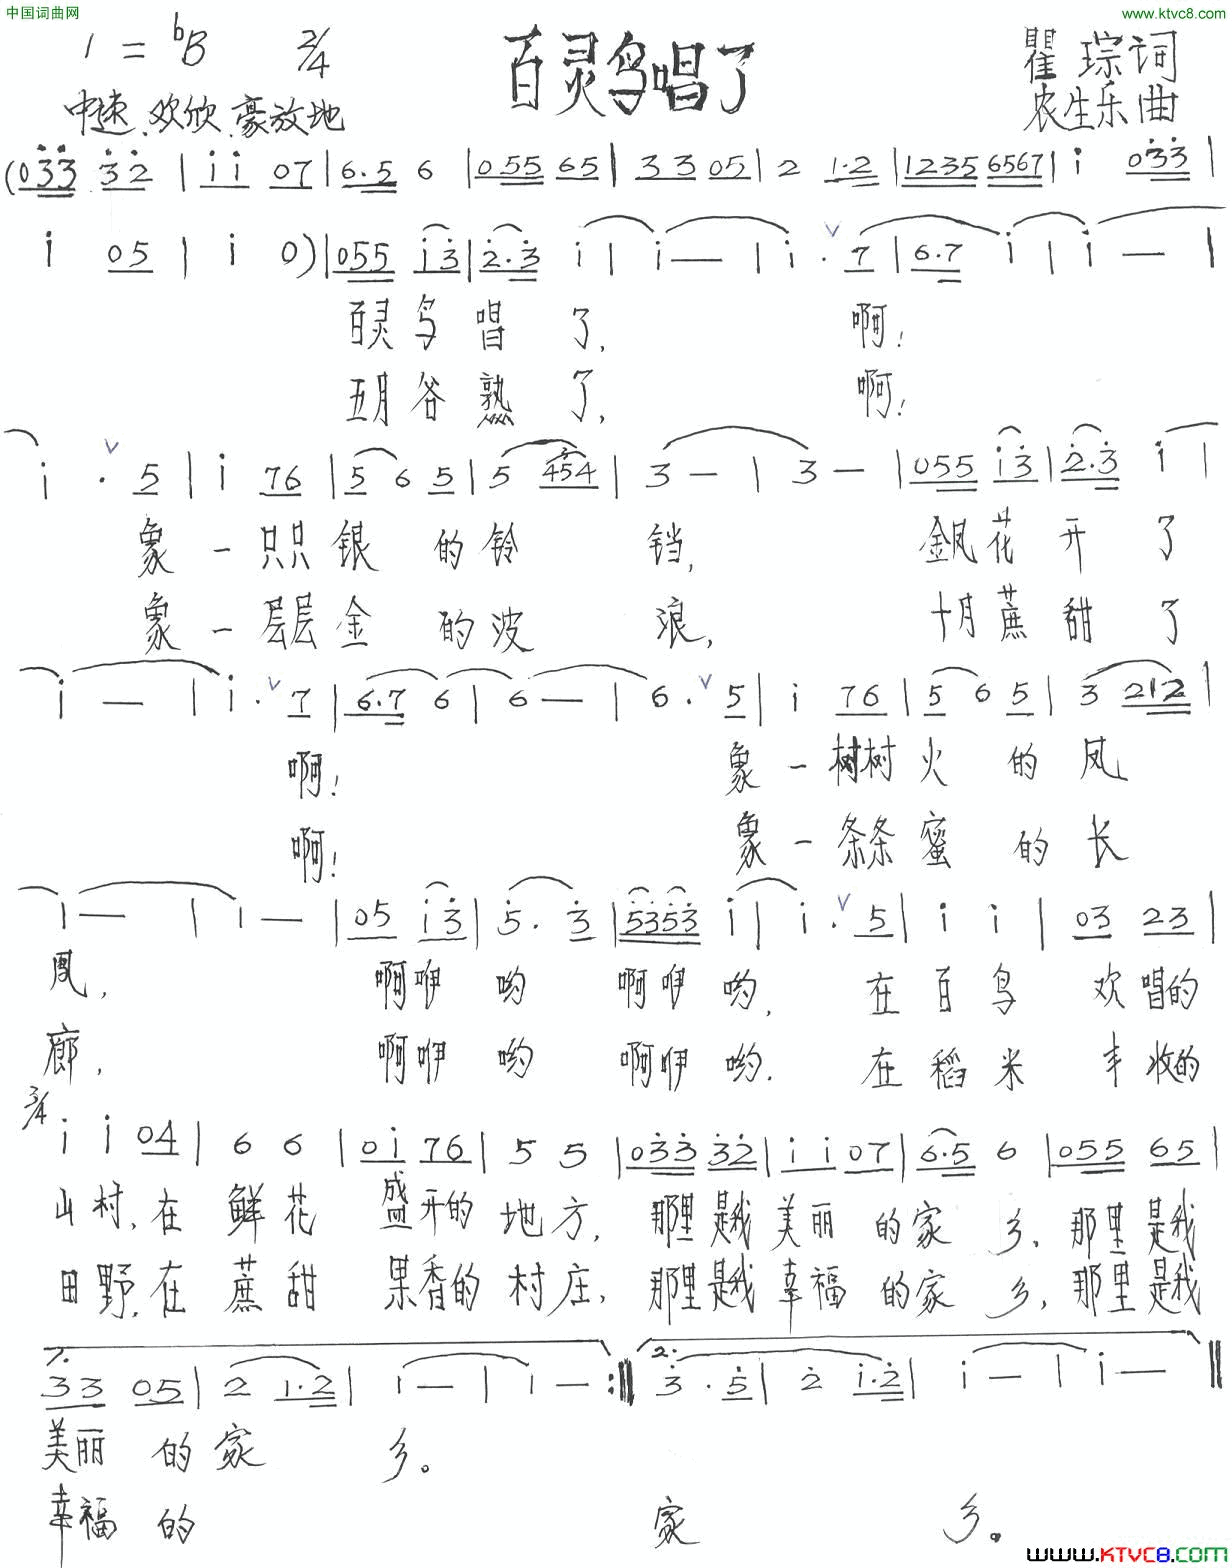 中国词曲网
www.ktvc8.com
1 = ♭B 2/4 百灵鸟唱了 瞿琮词
中速、欢欣、豪放地 农生乐曲
(033 32 | i i 07 | 6.5 6 | 055 65 | 33 05 | 2 1.2 | 1235 6567 | i 033 |
i 05 | i 0) | 055 i3 | 2.3 i | i — | i . 7 | 6.7 i | i — |
百灵鸟唱了, 啊!
五月谷熟了, 啊!
i . 5 | i 76 | 5 6 5 | 5 454 | 3 — | 3 — | 055 i3 | 2.3 i |
象一只只银的铃铛, 金凤花开了
象一层层金的波浪, 十月蔗甜了
i — | i . 7 | 6.7 6 | 6 — | 6 . 5 | i 76 | 5 6 5 | 3 212 |
啊! 象一树树火的凤
啊! 象一条条蜜的长
1 — | 1 — | 05 i3 | 5 . 3 | 5353 i | i . 5 | i i | 03 23 |
凰, 啊咿哟啊咿哟, 在百鸟欢唱的
廊, 啊咿哟啊咿哟. 在稻米丰收的
3/4
i i 04 | 6 6 | 0i 76 | 5 5 | 033 32 | i i 07 | 6.5 6 | 055 65 |
山村,在鲜花盛开的地方,那里是我美丽的家乡、那里是我
田野,在蔗甜果香的村庄,那里是我幸福的家乡,那里是我
1. 2.
33 05 | 2 1.2 | 1 — | 1 — :|| 3 . 5 | 2 i.2 | i — | i — ||
美丽的家乡。
幸福的家乡。
www.KTVC8.com